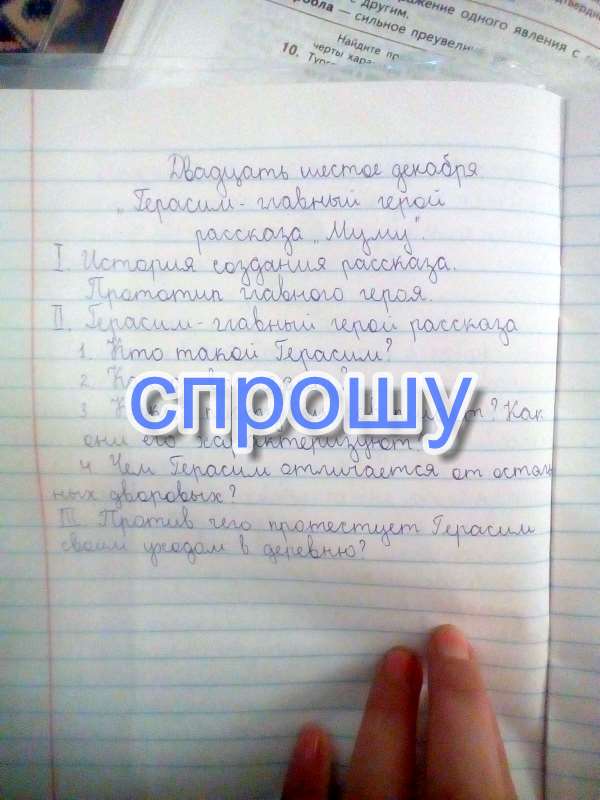 ражение одного явления с
с другим.
рбола — сильное преувелич
Найдите пр
черты хара
10. Турге
Двадцать шестое декабря
„Герасим - главный герой
рассказа „Муму".
I. История создания рассказа.
Прототип главного героя.
II. Герасим - главный герой рассказа
1. Кто такой Герасим?
2.
спрошу
3. ? Как
они его характеризуют?
4. Чем Герасим отличается от осталь
ных дворовых?
III. Против чего протестует Герасим
своим уходом в деревню?